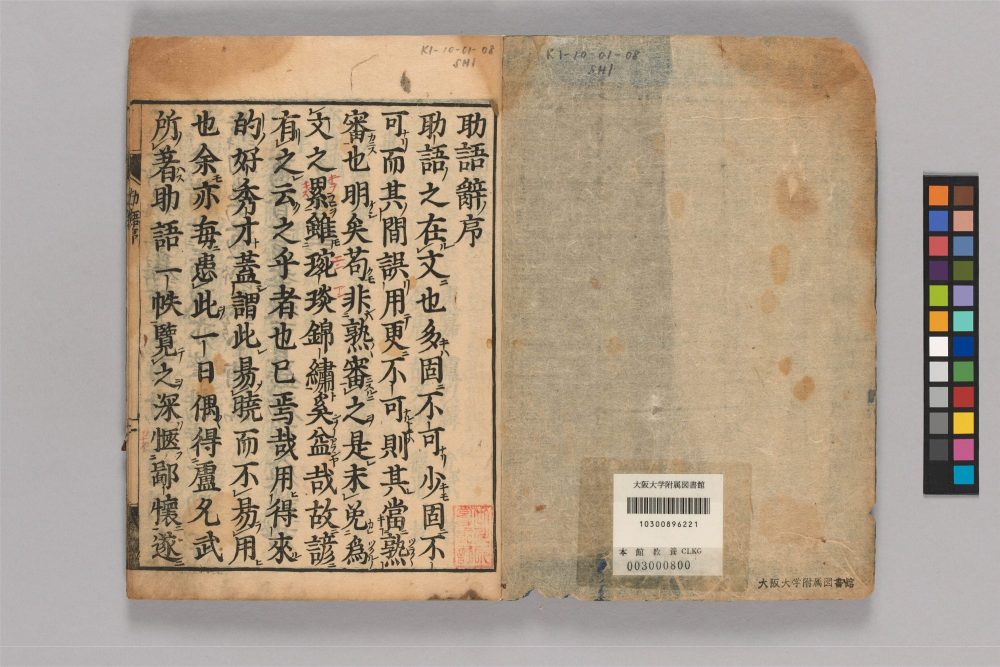 K1-10-01-08
SHI
大阪大学附属図書館
10300896221
本館教養CLKG
003000800
大阪大学附属図書館
K1-10-01-08
SHI
助語辭序
助語之在文也多固不可少固不
可而其間誤用更不可則其當熟
審也明矣苟非熟審之是末免為
文之累雖琬琰錦繡矣益哉故諺
有之云之乎者也已焉哉用得來
的好秀才蓋謂此易曉而不易用
也余亦每患此一日偶得盧允武
所著助語一帙覽之深愜鄙懷遂
助語序